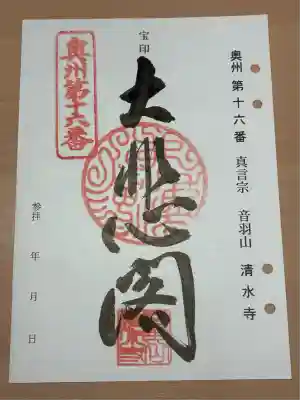 奥州 第十六番 真言宗 音羽山 清水寺
宝印
大悲閣
奥州第十六番
参拝 年 月 日